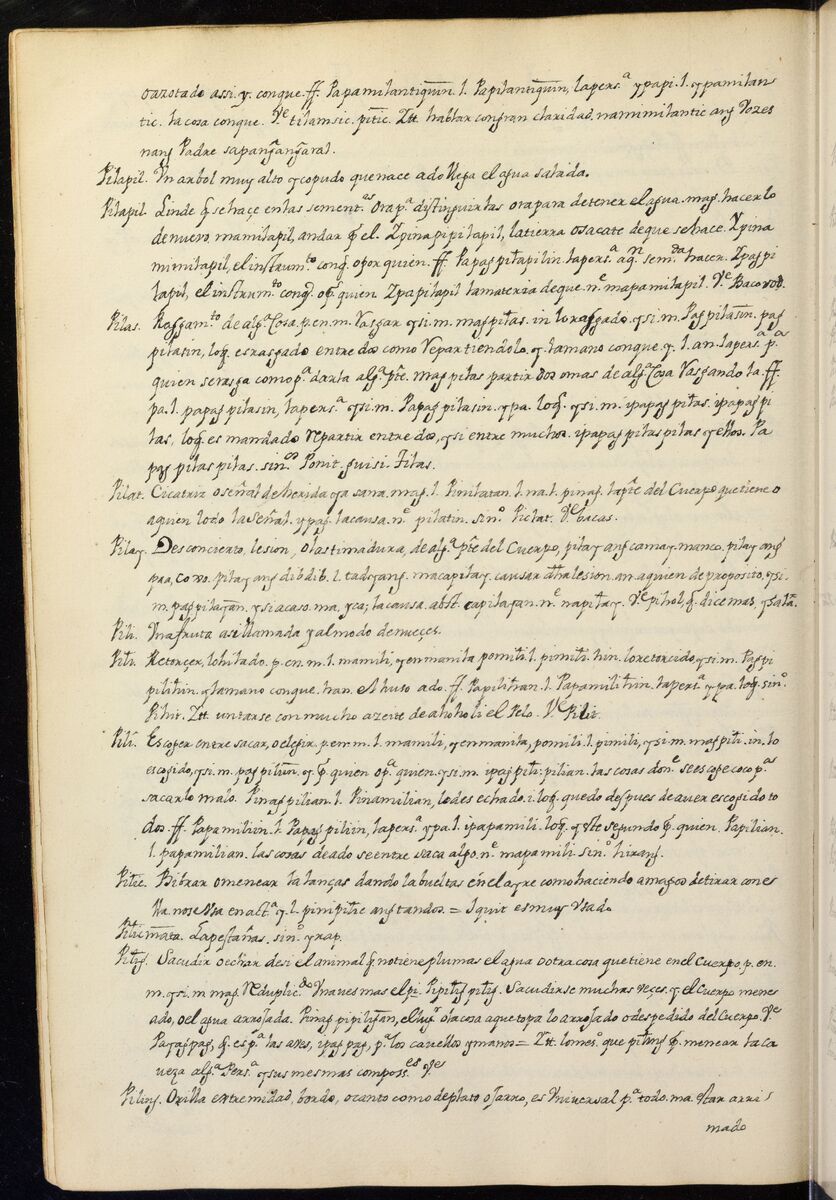 o azotado assi. y. conque. ff. Papamilantiquin. l. Papilantiquin, la pers.ª y papi. l. y pamilan
tic. la cosa conque. V.e tilamsic. pitic. Ztt. hablar con gran claridad. nanimilantic ang Vozes
nang Padre sa pangangaral.
Pilapil. Vn arbol muy alto y copudo que nace ado llega el agua salada.
Pilapil. Linde q̃ se haçe en las sement.as ora p.ª distinguirlas ora para detener el agua. mag. hacerlo
de nuevo, mamilapil, andar q̃ el. Ypinapipilapil, la tierra o sacate de que se hace. Ypina
mimilapil, el instrum.to conq̃. o por quien. ff. Papagpilapilin. la pers.ª aq.n hacer. Ypagpi
lapil, el instrum.to conq̃. o p.r quien Ypapilapil la materia de que. n.e mapamilapil. V.e Bacovod.
Pilas. Rasgam.to de alg.ª Cosa. p. en. m. Vasgar y si. m. magpilas. in lo rasgado. y si. m. Pagpilasin. pag
pilasin, loq̃. es rasgado entre dos como Repartiendolo. y la mano conque. y. l. an. la pers.ª p.ª
quien se rasga como p.ª darla alg.ª p.te. magpilas partir dos o mas de alg.ª Cosa Vasgando la. ff.
pa. l. papagpilasin, la pers.ª y si. m. Papagpilasin. y pa. loq̃. y si. m. ipapagpilas. ipapagpi
las, loq̃. es mandado Repartir entre dos, y si entre muchos. ipapagpilaspilas y ellos. Pa
pagpilaspilas. sin.os Ponit. guisi. Filas.
Pilat. Cicatriz o señal de herida ya sana. mag. l. Pinilatan. l. na. l. pinag. la p.te del Cuerpo que tiene o
a quien todo la señal. y pag. la causa. n.e pilatin. sin.o Piclat. V.e bacas.
Pilay. Desconcierto, lesion, o lastimadura, de alg.ª p.te del Cuerpo, pilay ang camay. manco. pilay ang
paa, Coxo. pilay ang dibdib. l. tadyang. macapilay. causar dha lesion. an. a quien de proposito, y si.
m. pagpilayan. y si acaso. ma. yca; la causa. abst. capilayan. n.e napilay. V.e pihol, q̃. dice mas,
Pili. Vna fruta assi llamada y al modo de nueçes.
Pili. Retorçer, lo hilado. p. en. m. l. mamili, y en manila pomili. l. pimili. hin. lo retorcido y si. m. Pagpi
pilihin. y la mano conque. han. el huso ado. ff. Papilihan. l. Papamilihin. la pers.ª y pa. loq̃. sin.o
Pihit. Ztt. untarse con mucho azeite de aholi el Pelo. V.e Pilit.
Pili. Escoger entre sacar, o elegir. p. en m. l. mamili, y en manila, pomili. l. pimili, y si. m. magpili. in. lo
escogido, y si. m. pagpiliin y q̃ quien o p.ª quien, y si. m. ipagpili. pilian. las cosas don.e se escoge coco p.as
sacar lo malo. Pinagpilian. l. Pinamilian, lo desechado. i. loq̃. quedo despues de aver escogido to
dos. ff. Papamiliin. l. Papagpiliin, la pers.ª y pa. l. ipapamili. loq̃. y este segundo q̃. quien. Papilian.
l. papamilian. las cosas de ado se entre saca algo. n.e mapamili. sin.o hirang.
Pilic. Bibrar o menear la lança dando la bueltas en el ayre como haciendo amagos de tirar con es
lla. no se Vsa en act.ª y. l. pinipilic ang tandos. = Iquit es muy Vsado
Pilicmata. La pestañas. sin.o yrap.
Piling. Sacudir o echar de si el animal q̃. no tiene plumas el agua o otra cosa que tiene en el Cuerpo. p. en.
m. y si. m mag. Reduplic.do Vna ves mas el pi. Pipiling piling. Sacudirse muchas veçes. y el Cuerpo menes
ado, o el agua arrojada. Pinagpipilingan, el lug.r o la cosa a que topa lo arrojado o despedido del Cuerpo. V.e
Payagpag, q̃ es p.ª las aves, ipagpag, p.ª los cavellos y manos = Ztt. lo mes.o que q̃. menear la ca
veza alg.ª Pers.ª y sus mesmas composs.es V.e
Piling. Orilla extremidad, bordo, o canto como de plato o Jarro, es Vniversal p.ª todo. ma. Star arri
mado